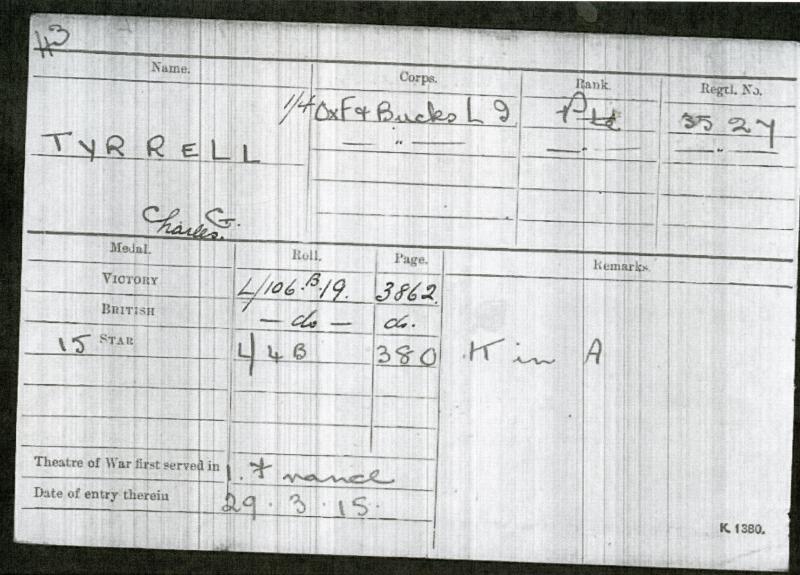 43
Name. Corps. Rank. Regtl. No.
1/4 Ox F & Bucks L I Pte 3527
TYRRELL — " — — " — — " —
Charles G.
Medal. Roll. Page. Remarks.
VICTORY L/106.B.19. 3862.
BRITISH — do — do.
15 STAR L/4B 380 K in A
Theatre of War first served in 1. France
Date of entry therein 29.3.15.
K. 1380.